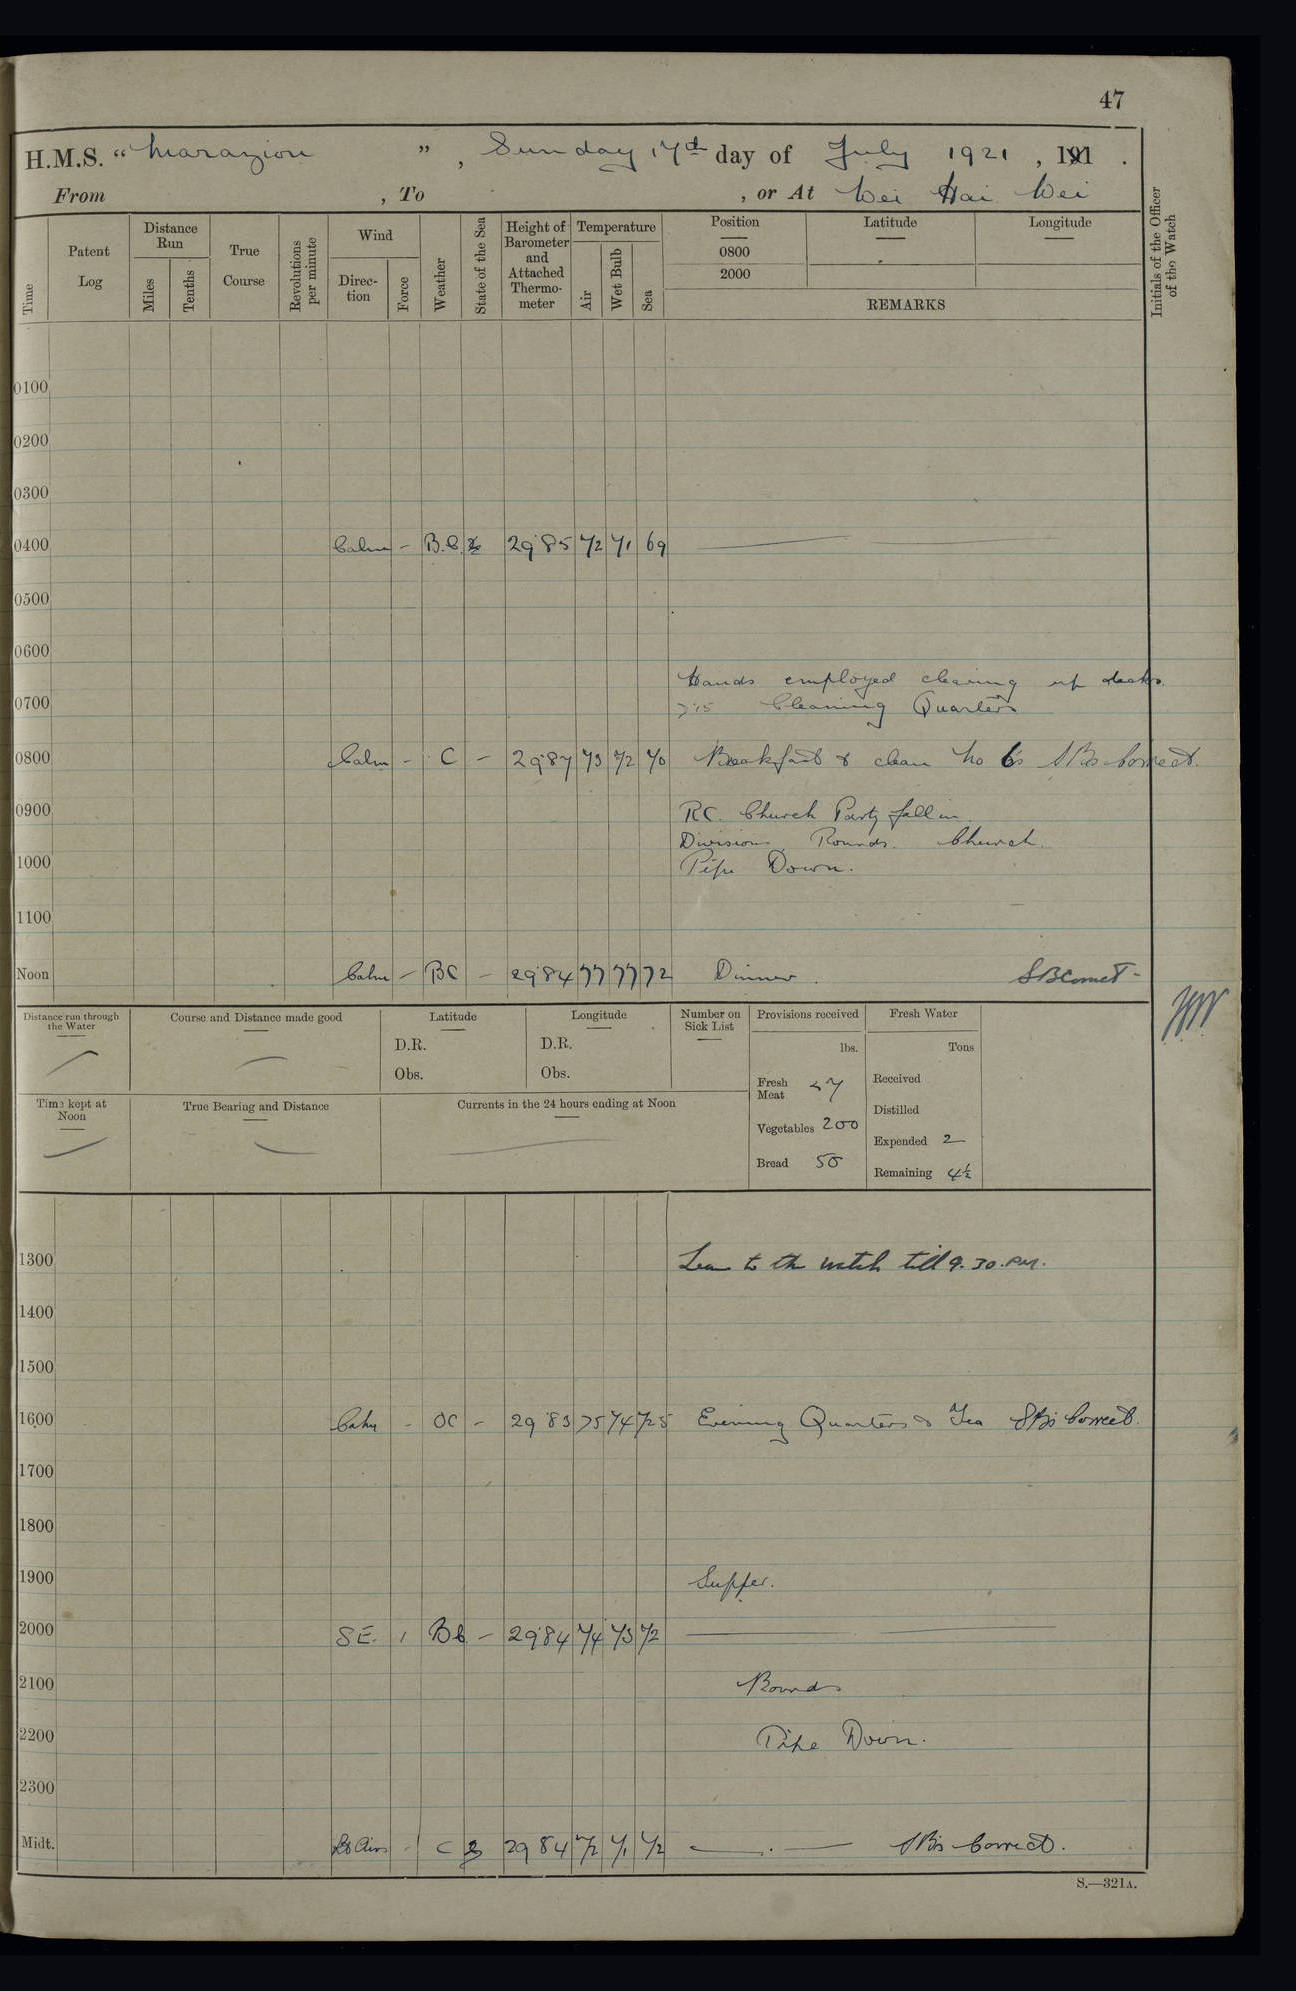 47
H.M.S. "Marazion", Sunday 17th day of July 1921, 191 .
From , To , or At Wei Hai Wei
Time Patent Log Distance Run Miles Tenths True Course Revolutions per minute Wind Direc-tion Force Weather State of the Sea Height of Barometer and Attached Thermo-meter Temperature Air Wet Bulb Sea Position 0800 2000 Latitude Longitude
REMARKS
Initials of the Officer of the Watch
0100
0200
0300
0400 Calm - B.C. 29.85 72 71 69
0500
0600
Hands employed clearing up decks.
0700 7.15 Cleaning Quarters
0800 Calm - C - 29.87 73 72 70 Breakfast & clean No 6's SBs Correct.
0900 RC. Church Party fall in.
Divisions. Rounds. Church.
1000 Pipe Down.
1100
Noon Calm - BC - 29.84 77 77 72 Dinner. SBCorrect -
Distance run through the Water Course and Distance made good Latitude Longitude Number on Sick List Provisions received Fresh Water
D.R. D.R. lbs. Tons
Obs. Obs. Fresh Meat 27 Received
Time kept at Noon True Bearing and Distance Currents in the 24 hours ending at Noon
Distilled
Vegetables 200 Expended 2
Bread 50 Remaining 4½
1300 to the watch till 9.30.PM.
1400
1500
1600 Calm - OC - 29 83 75 74 725 Evening Quarters & Tea SBs Correct.
1700
1800
1900 Supper.
2000 SE. 1 Bc - 29.84 74 73 72
2100 Rounds
2200 Pipe Down.
2300
Midt. Lt Airs - C 29 84 72 71 72 SBs Correct.
S.—321A.